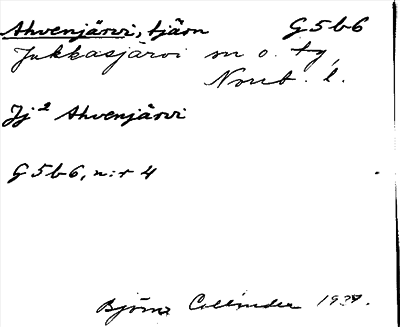 Ahvenjärvi, tjärn G5b6
Jukkasjärvi sn o. tg,
Norrb. l.
Jj² Ahvenjärvi
G5b6, n:r 4
Björn Collinder 1937.